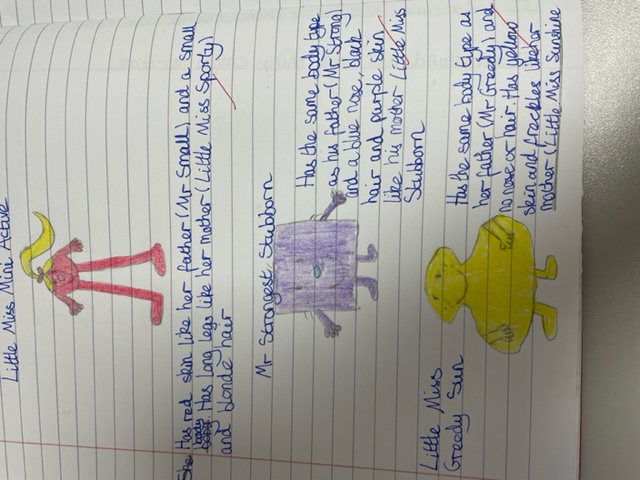 Little Miss Mini Active
She Has red skin like her father (Mr Small) and a small
body Has long legs like her mother (Little Miss Sporty)
and blonde hair
Mr Strongest Stubborn
Has the same body type
as his father (Mr Strong)
and a blue nose, black
hair and purple skin
like his mother (Little Miss
Stubborn
Little Miss
Greedy Sun
Has the same body type as
her father (Mr Greedy) and
no nose or hair. Has yellow
skin and freckles like her
mother (Little Miss Sunshine